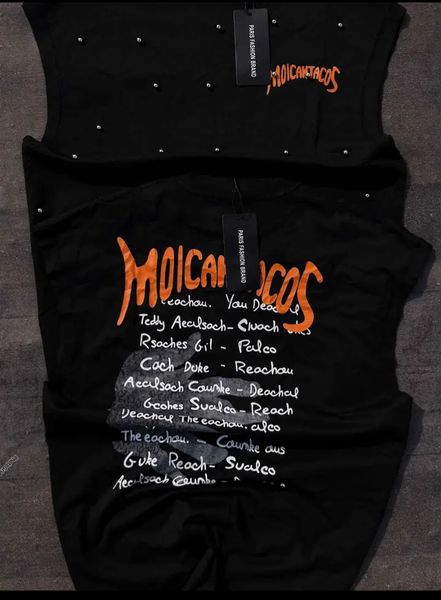 PARIS FASHION BRAND
MOICANTACOS
PARIS FASHION BRAND
MOICAN ACOS
eachau. You Deac
Teddy Aeculsoch - Cwach
Rsoches Gil - Palco
Cach Duke - Reachau
Aeculsach Caunke - Deachal
Gcohes Sualco - Reach
Deachal The eachau. alco
The eachau. - Caunke aus
Guke Reach - Sualco
Aeculsach Caunke -